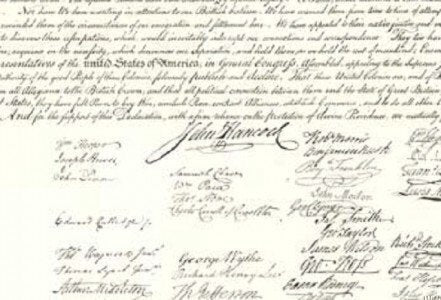 Nor have We been wanting in attentions to our British brethren. We have warned them from time to time of attempts
reminded them of the circumstances of our emigration and settlement here. We have appealed to their native justice and
to disavow these usurpations, which would inevitably interrupt our connections and correspondence. They too have
acquiesce in the necessity, which denounces our Separation, and hold them, as we hold the rest of mankind, Enemies
resentatives of the united States of America, in General Congress, Assembled, appealing to the Supreme
uthority of the good People of these Colonies, solemnly publish and declare, That these United Colonies are, and of
om all Allegiance to the British Crown, and that all political connection between them and the State of Great Britain
t States, they have full Power to levy War, conclude Peace, contract Alliances, establish Commerce, and to do all other
And for the support of this Declaration, with a firm reliance on the protection of divine Providence, we mutually
John Hancock
Robt Morris
Wm Hooper
Benjamin Rush
Joseph Hewes
Benj. Franklin
John Penn
Samuel Chase
Wm Paca
John Morton
Thos Stone
Geo Clymer
Charles Carroll of Carrollton
Jas Smith
Edward Rutledge
Geo Taylor
James Wilson
Richd Stockton
Thos Heyward Junr
George Wythe
Geo Ross
Thomas Lynch Junr
Richard Henry Lee
Caesar Rodney
Arthur Middleton
Th Jefferson